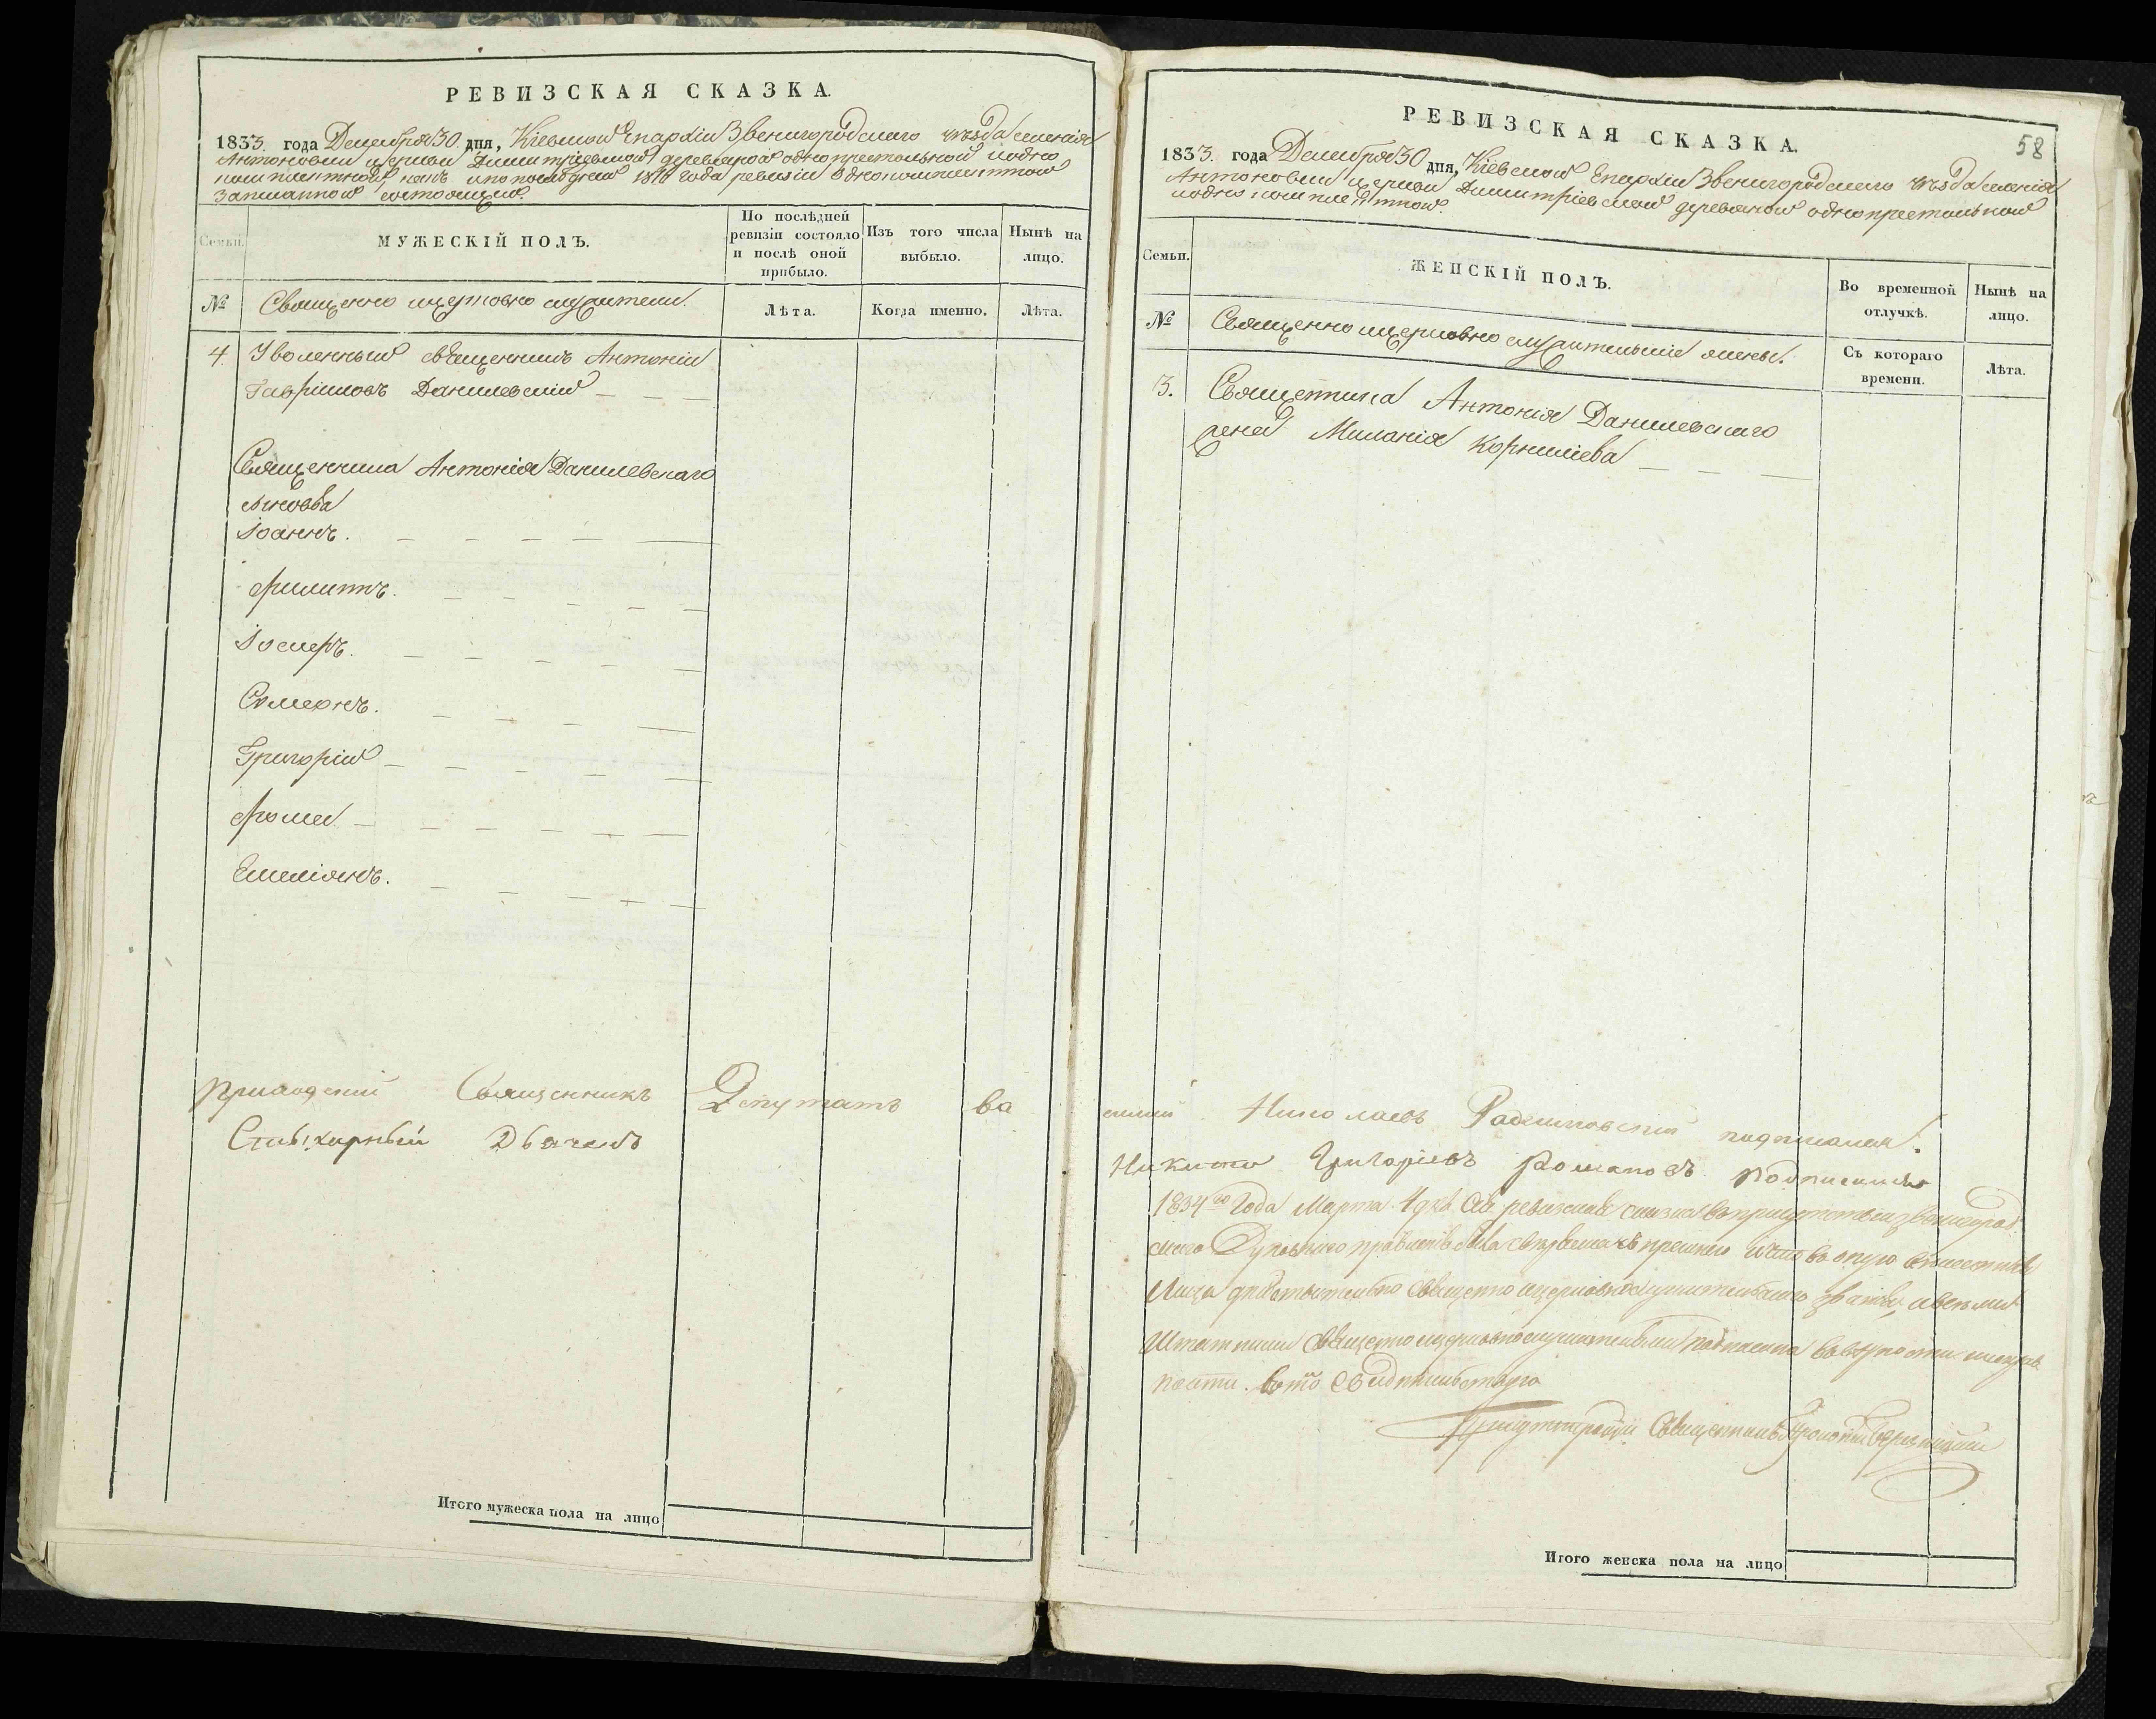 РЕВИЗСКАЯ СКАЗКА.
1833. года Декабря 30 дня, Кіевской Епархіи Звенигородскаго уѣзда селенія
Антоновки церкви Димитріевской деревяной однопрестольной и одно
комплектной, какъ и по последней 1816 года ревизіи однокомплектною
записанной состоящей.
Семьи.
МУЖЕСКІЙ ПОЛЪ.
По послѣдней ревизіи состояло и послѣ оной прибыло.
Изъ того числа выбыло.
Нынѣ на лицо.
№
Священно и церковно служители.
Лѣта.
Когда именно.
Лѣта.
4. Уволенный священникъ Антоній
Гавріиловъ Данилевскій
Священника Антонія Данилевскаго
сыновья
Іоаннъ.
Филиппъ.
Іосифъ.
Симеонъ.
Григорій
Фома
Емеліянъ.
Приходский Священникъ Депутатъ Ва
Стихарный Дьячекъ
Итого мужеска пола на лицо
58
РЕВИЗСКАЯ СКАЗКА.
1833. года Декабря 30 дня, Кіевской Епархіи Звенигородскаго уѣзда селенія
Антоновки церкви Димитріевской деревяной однопрестольной
и однокомплектной.
Семьи.
ЖЕНСКІЙ ПОЛЪ.
Во временной отлучкѣ.
Нынѣ на лицо.
№
Священно и церковно служительскіе жены.
Съ котораго времени.
Лѣта.
3. Священника Антонія Данилевскаго
жена Миланія Корнилієва
силий Николаевъ подписался.
Никита Григоріевъ Романовъ подписался
1834го года Марта 4 дня Сія ревизская сказка въ присутствіи Звенигород
скаго Духовнаго правленія
лица действительно священно и церковнослужительскаго званія, и всеми
штатными священно и церковнослужителями подписана
ности. въ томъ свидетельствую
Присутствующій Священникъ
Итого женска пола на лицо